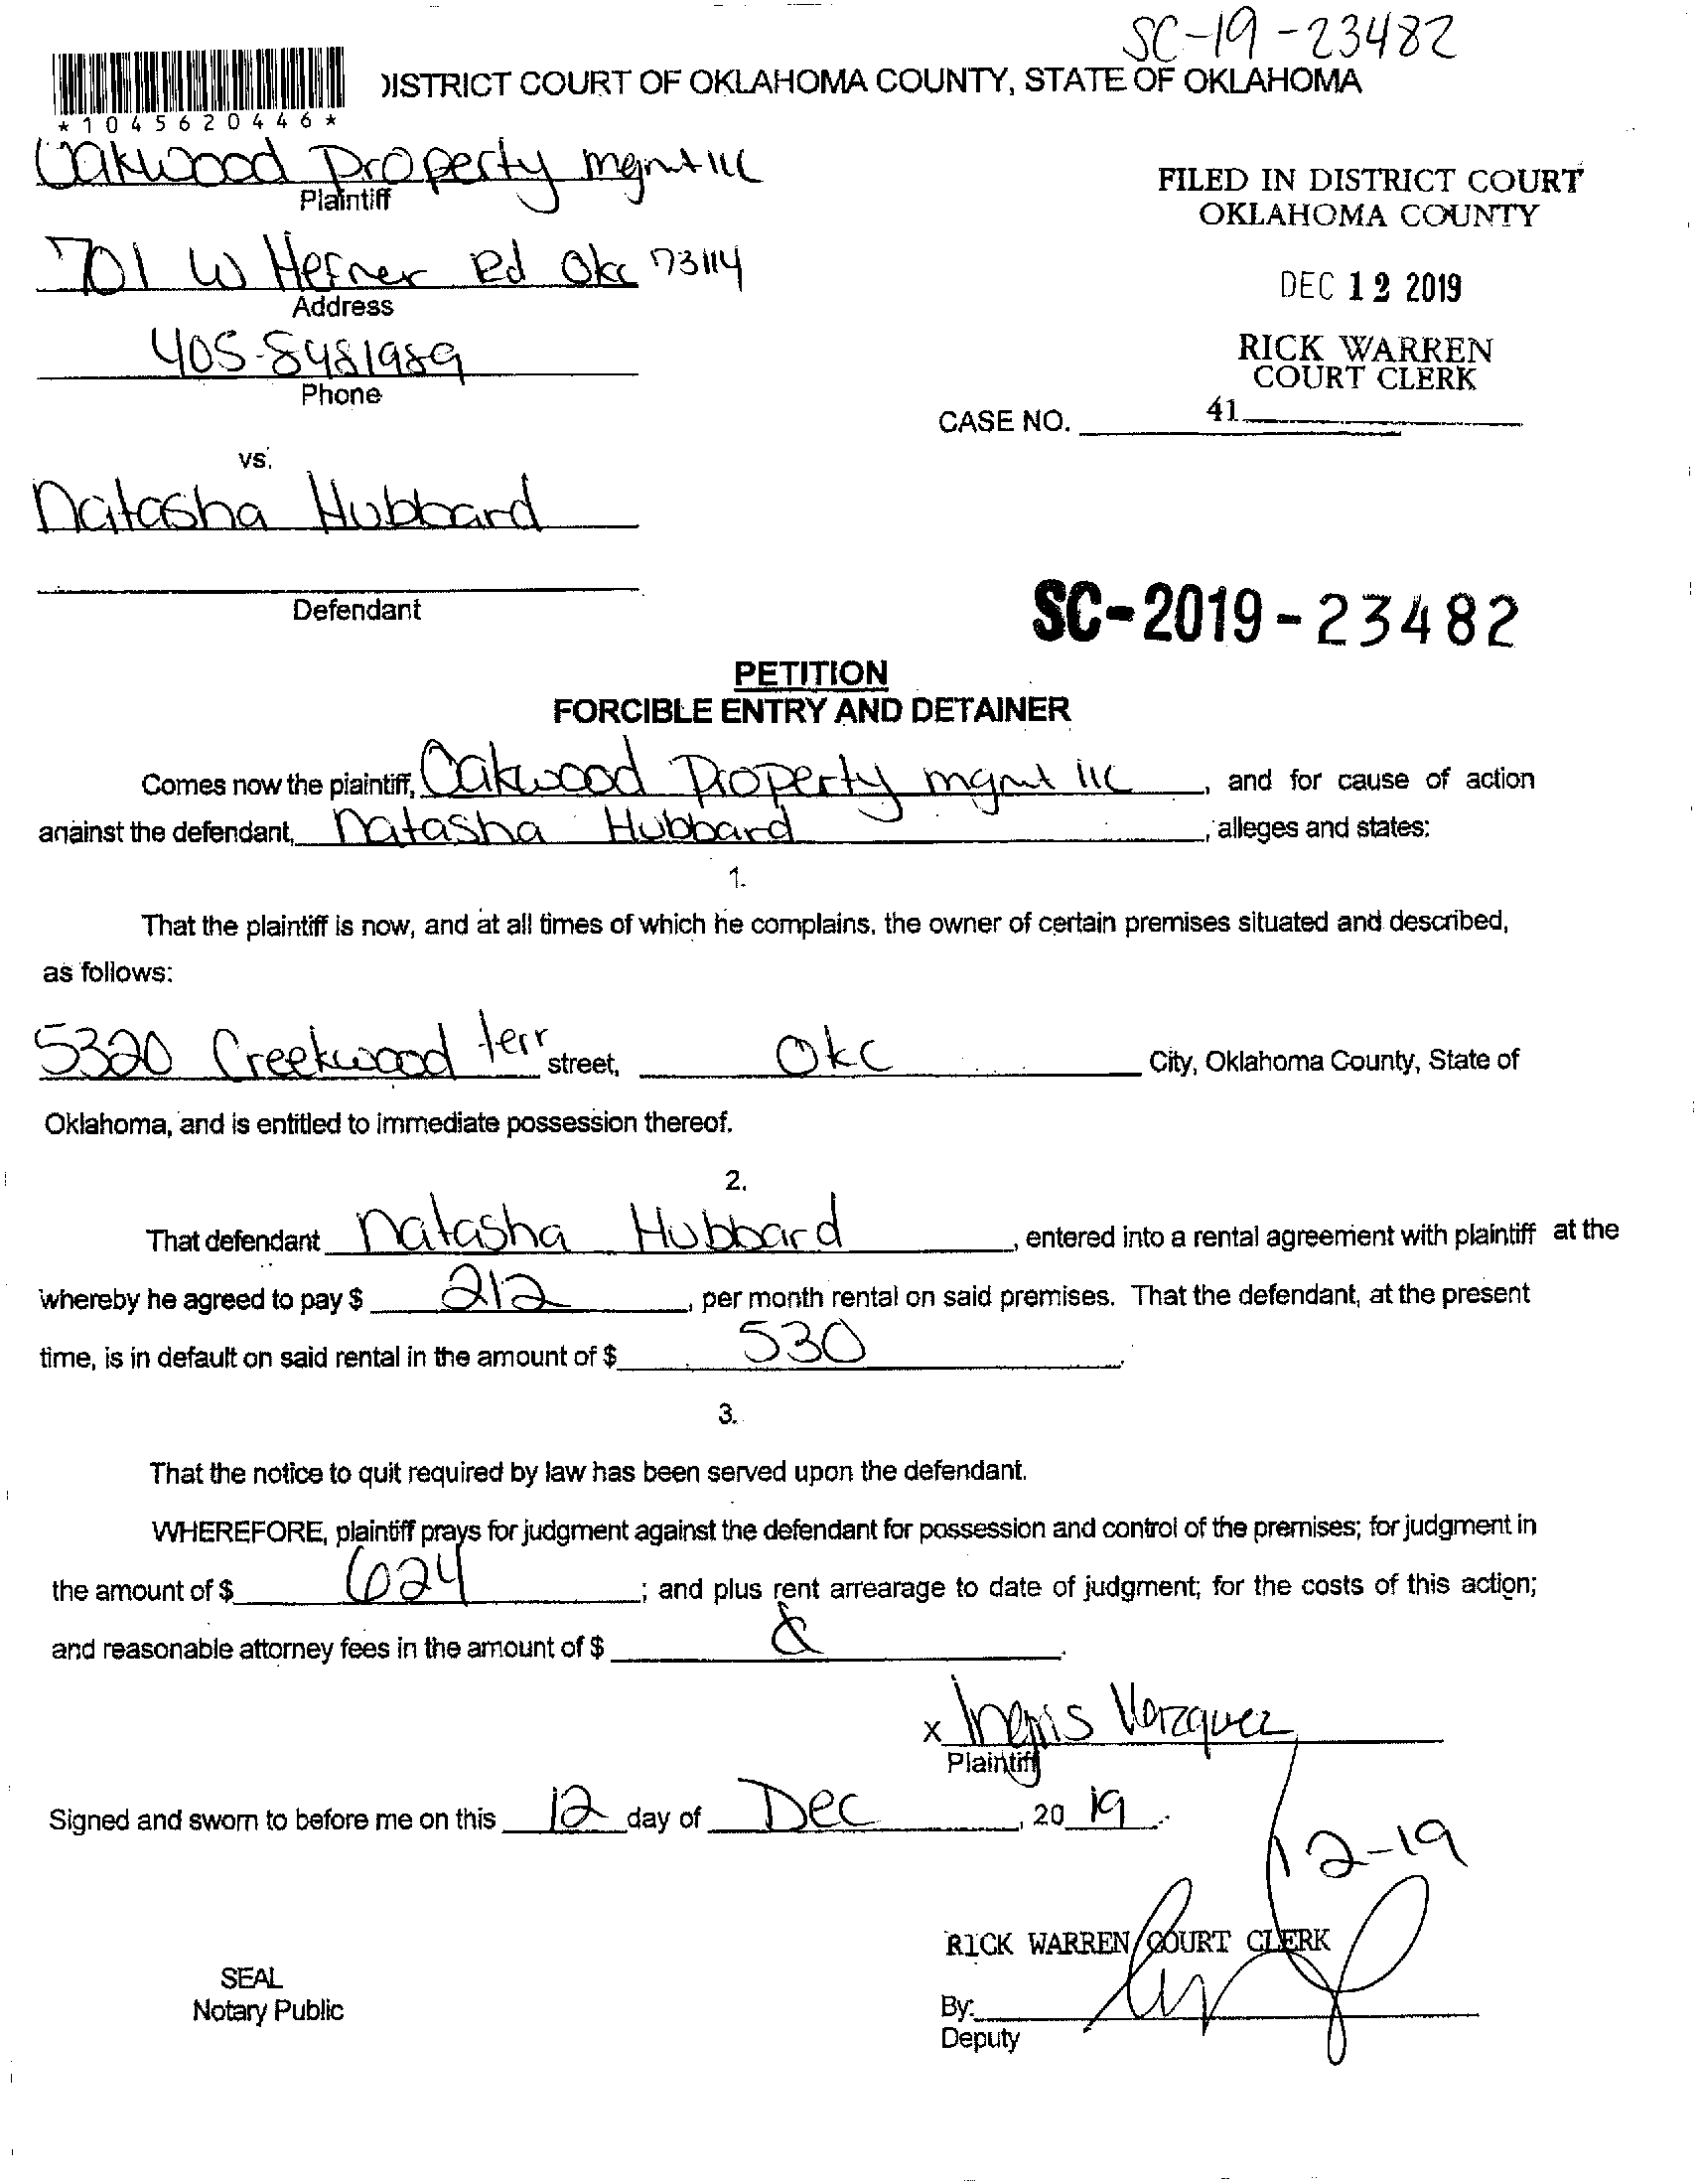 SC-19-23482
DISTRICT COURT OF OKLAHOMA COUNTY, STATE OF OKLAHOMA
*1045620446*
Oakwood Property mgmt llc
Plaintiff
FILED IN DISTRICT COURT
OKLAHOMA COUNTY
701 W Hefner Rd Okc 73114
Address
DEC 12 2019
405-8481989
Phone
RICK WARREN
COURT CLERK
CASE NO. 41
vs.
Natasha Hubbard
Defendant
SC-2019-23482
PETITION
FORCIBLE ENTRY AND DETAINER
Comes now the plaintiff, Oakwood Property mgmt llc, and for cause of action
against the defendant, Natasha Hubbard, alleges and states:
1.
That the plaintiff is now, and at all times of which he complains, the owner of certain premises situated and described,
as follows:
5320 Creekwood terr street, Okc City, Oklahoma County, State of
Oklahoma, and is entitled to immediate possession thereof.
2.
That defendant Natasha Hubbard, entered into a rental agreement with plaintiff at the
whereby he agreed to pay $ 212, per month rental on said premises. That the defendant, at the present
time, is in default on said rental in the amount of $ 530.
3.
That the notice to quit required by law has been served upon the defendant.
WHEREFORE, plaintiff prays for judgment against the defendant for possession and control of the premises; for judgment in
the amount of $ 624; and plus rent arrearage to date of judgment; for the costs of this action;
and reasonable attorney fees in the amount of $
x Vazquez
Plaintiff
Signed and sworn to before me on this 12 day of Dec, 20 19.
12-19
RICK WARREN COURT CLERK
SEAL
Notary Public
By:
Deputy